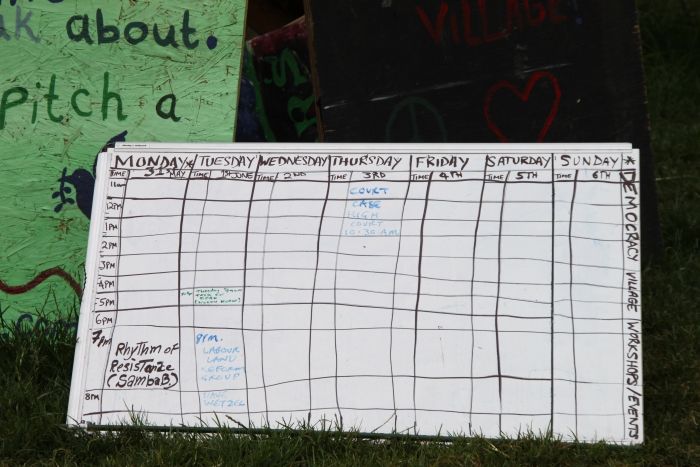 about.
pitch a
VILLAGE
MONDAY* TUESDAY WEDNESDAY THURSDAY FRIDAY SATURDAY SUNDAY
TIME 31st MAY TIME 1st JUNE TIME 2ND TIME 3RD TIME 4TH TIME 5TH TIME 6TH
11am
12PM
1PM
2PM
3PM
4PM
5PM
6PM
7PM
8PM
COURT
CASE
HIGH
COURT
10.30 AM
Rhythm of
Resistance
(SambaB)
8PM.
LABOUR
LAND
REFORM
GROUP
DAVE
WETZEL
* DEMOCRACY VILLAGE WORKSHOPS/EVENTS